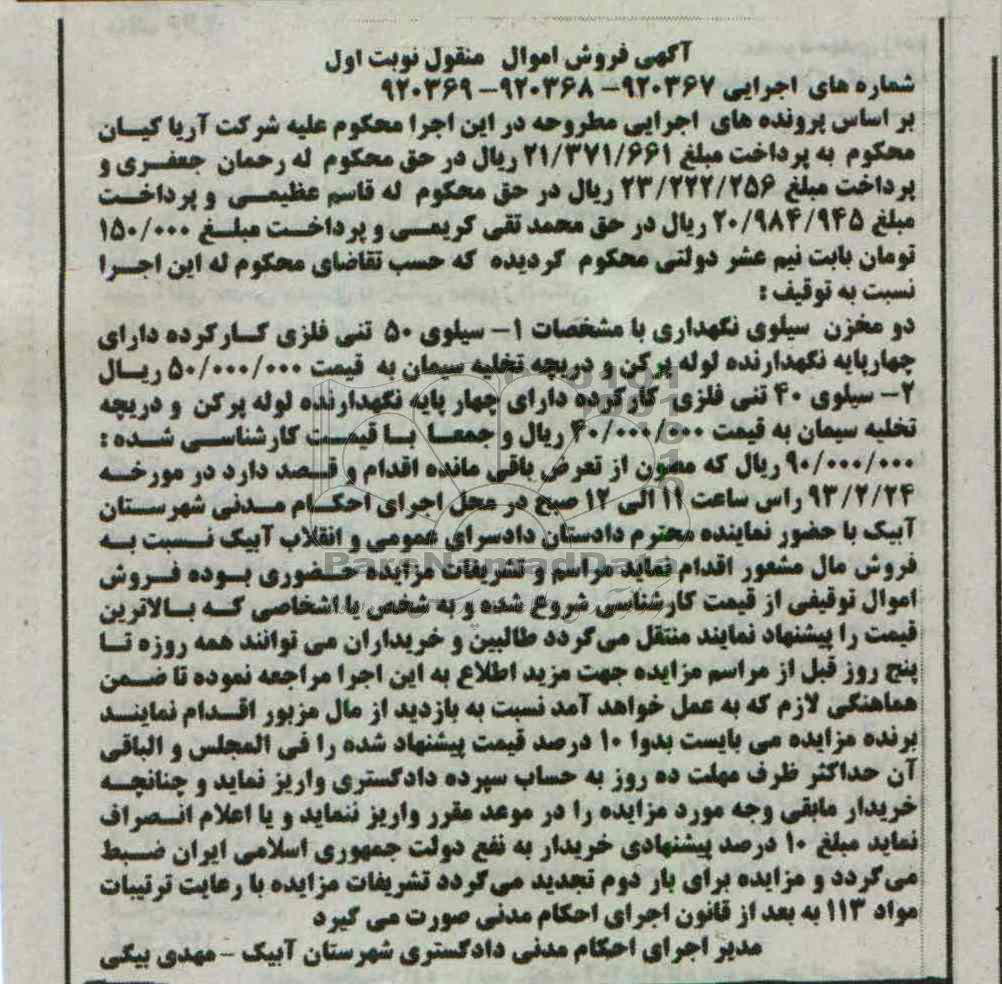 آگهی فروش اموال منقول نوبت اول
شماره های اجرایی ۹۲۰۳۶۷- ۹۲۰۳۶۸- ۹۲۰۳۶۹
بر اساس پرونده های اجرایی مطروحه در این اجرا محکوم علیه شرکت آریا کیان
محکوم به پرداخت مبلغ ۲۱/۳۷۱/۶۶۱ ریال در حق محکوم له رحمان جعفری و
پرداخت مبلغ ۲۳/۲۲۲/۲۵۶ ریال در حق محکوم له قاسم عظیمی و پرداخت
مبلغ ۲۰/۹۸۴/۹۴۵ ریال در حق محمد تقی کریمی و پرداخت مبلغ ۱۵۰/۰۰۰
تومان بابت نیم عشر دولتی محکوم گردیده که حسب تقاضای محکوم له این اجرا
نسبت به توقیف :
دو مخزن سیلوی نگهداری با مشخصات ۱- سیلوی ۵۰ تنی فلزی کارکرده دارای
چهارپایه نگهدارنده لوله پرکن و دریچه تخلیه سیمان به قیمت ۵۰/۰۰۰/۰۰۰ ریال
۲- سیلوی ۴۰ تنی فلزی کارکرده دارای چهار پایه نگهدارنده لوله پرکن و دریچه
تخلیه سیمان به قیمت ۴۰/۰۰۰/۰۰۰ ریال و جمعا با قیمت کارشناسی شده :
۹۰/۰۰۰/۰۰۰ ریال که مصون از تعرض باقی مانده اقدام و قصد دارد در مورخه
۹۳/۲/۲۴ راس ساعت ۱۱ الی ۱۲ صبح در محل اجرای احکام مدنی شهرستان
آبیک با حضور نماینده محترم دادستان دادسرای عمومی و انقلاب آبیک نسبت به
فروش مال مشعور اقدام نماید مراسم و تشریفات مزایده حضوری بوده فروش
اموال توقیفی از قیمت کارشناسی شروع شده و به شخص یا اشخاصی که بالاترین
قیمت را پیشنهاد نمایند منتقل می گردد طالبین و خریداران می توانند همه روزه تا
پنج روز قبل از مراسم مزایده جهت مزید اطلاع به این اجرا مراجعه نموده تا ضمن
هماهنگی لازم که به عمل خواهد آمد نسبت به بازدید از مال مزبور اقدام نمایند
برنده مزایده می بایست بدوا ۱۰ درصد قیمت پیشنهاد شده را فی المجلس و الباقی
آن حداکثر ظرف مهلت ده روز به حساب سپرده دادگستری واریز نماید و چنانچه
خریدار مابقی وجه مورد مزایده را در موعد مقرر واریز ننماید و یا اعلام انصراف
نماید مبلغ ۱۰ درصد پیشنهادی خریدار به نفع دولت جمهوری اسلامی ایران ضبط
می گردد و مزایده برای بار دوم تجدید می گردد تشریفات مزایده با رعایت ترتیبات
مواد ۱۱۳ به بعد از قانون اجرای احکام مدنی صورت می گیرد
مدیر اجرای احکام مدنی دادگستری شهرستان آبیک - مهدی بیگی
ParsNamadData